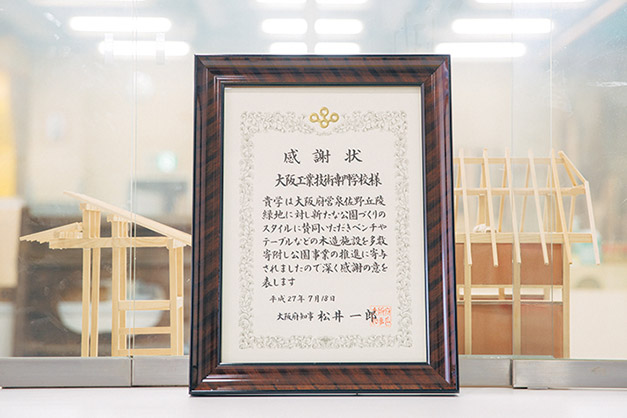 感謝状
大阪工業技術専門学校様
貴学は大阪府営泉佐野丘陵
緑地に対し新たな公園づくりの
スタイルに賛同いただきベンチや
テーブルなどの木造施設を多数
寄附し公園事業の推進に寄与
されましたので深く感謝の意を
表します
平成27年7月18日
大阪府知事 松井一郎